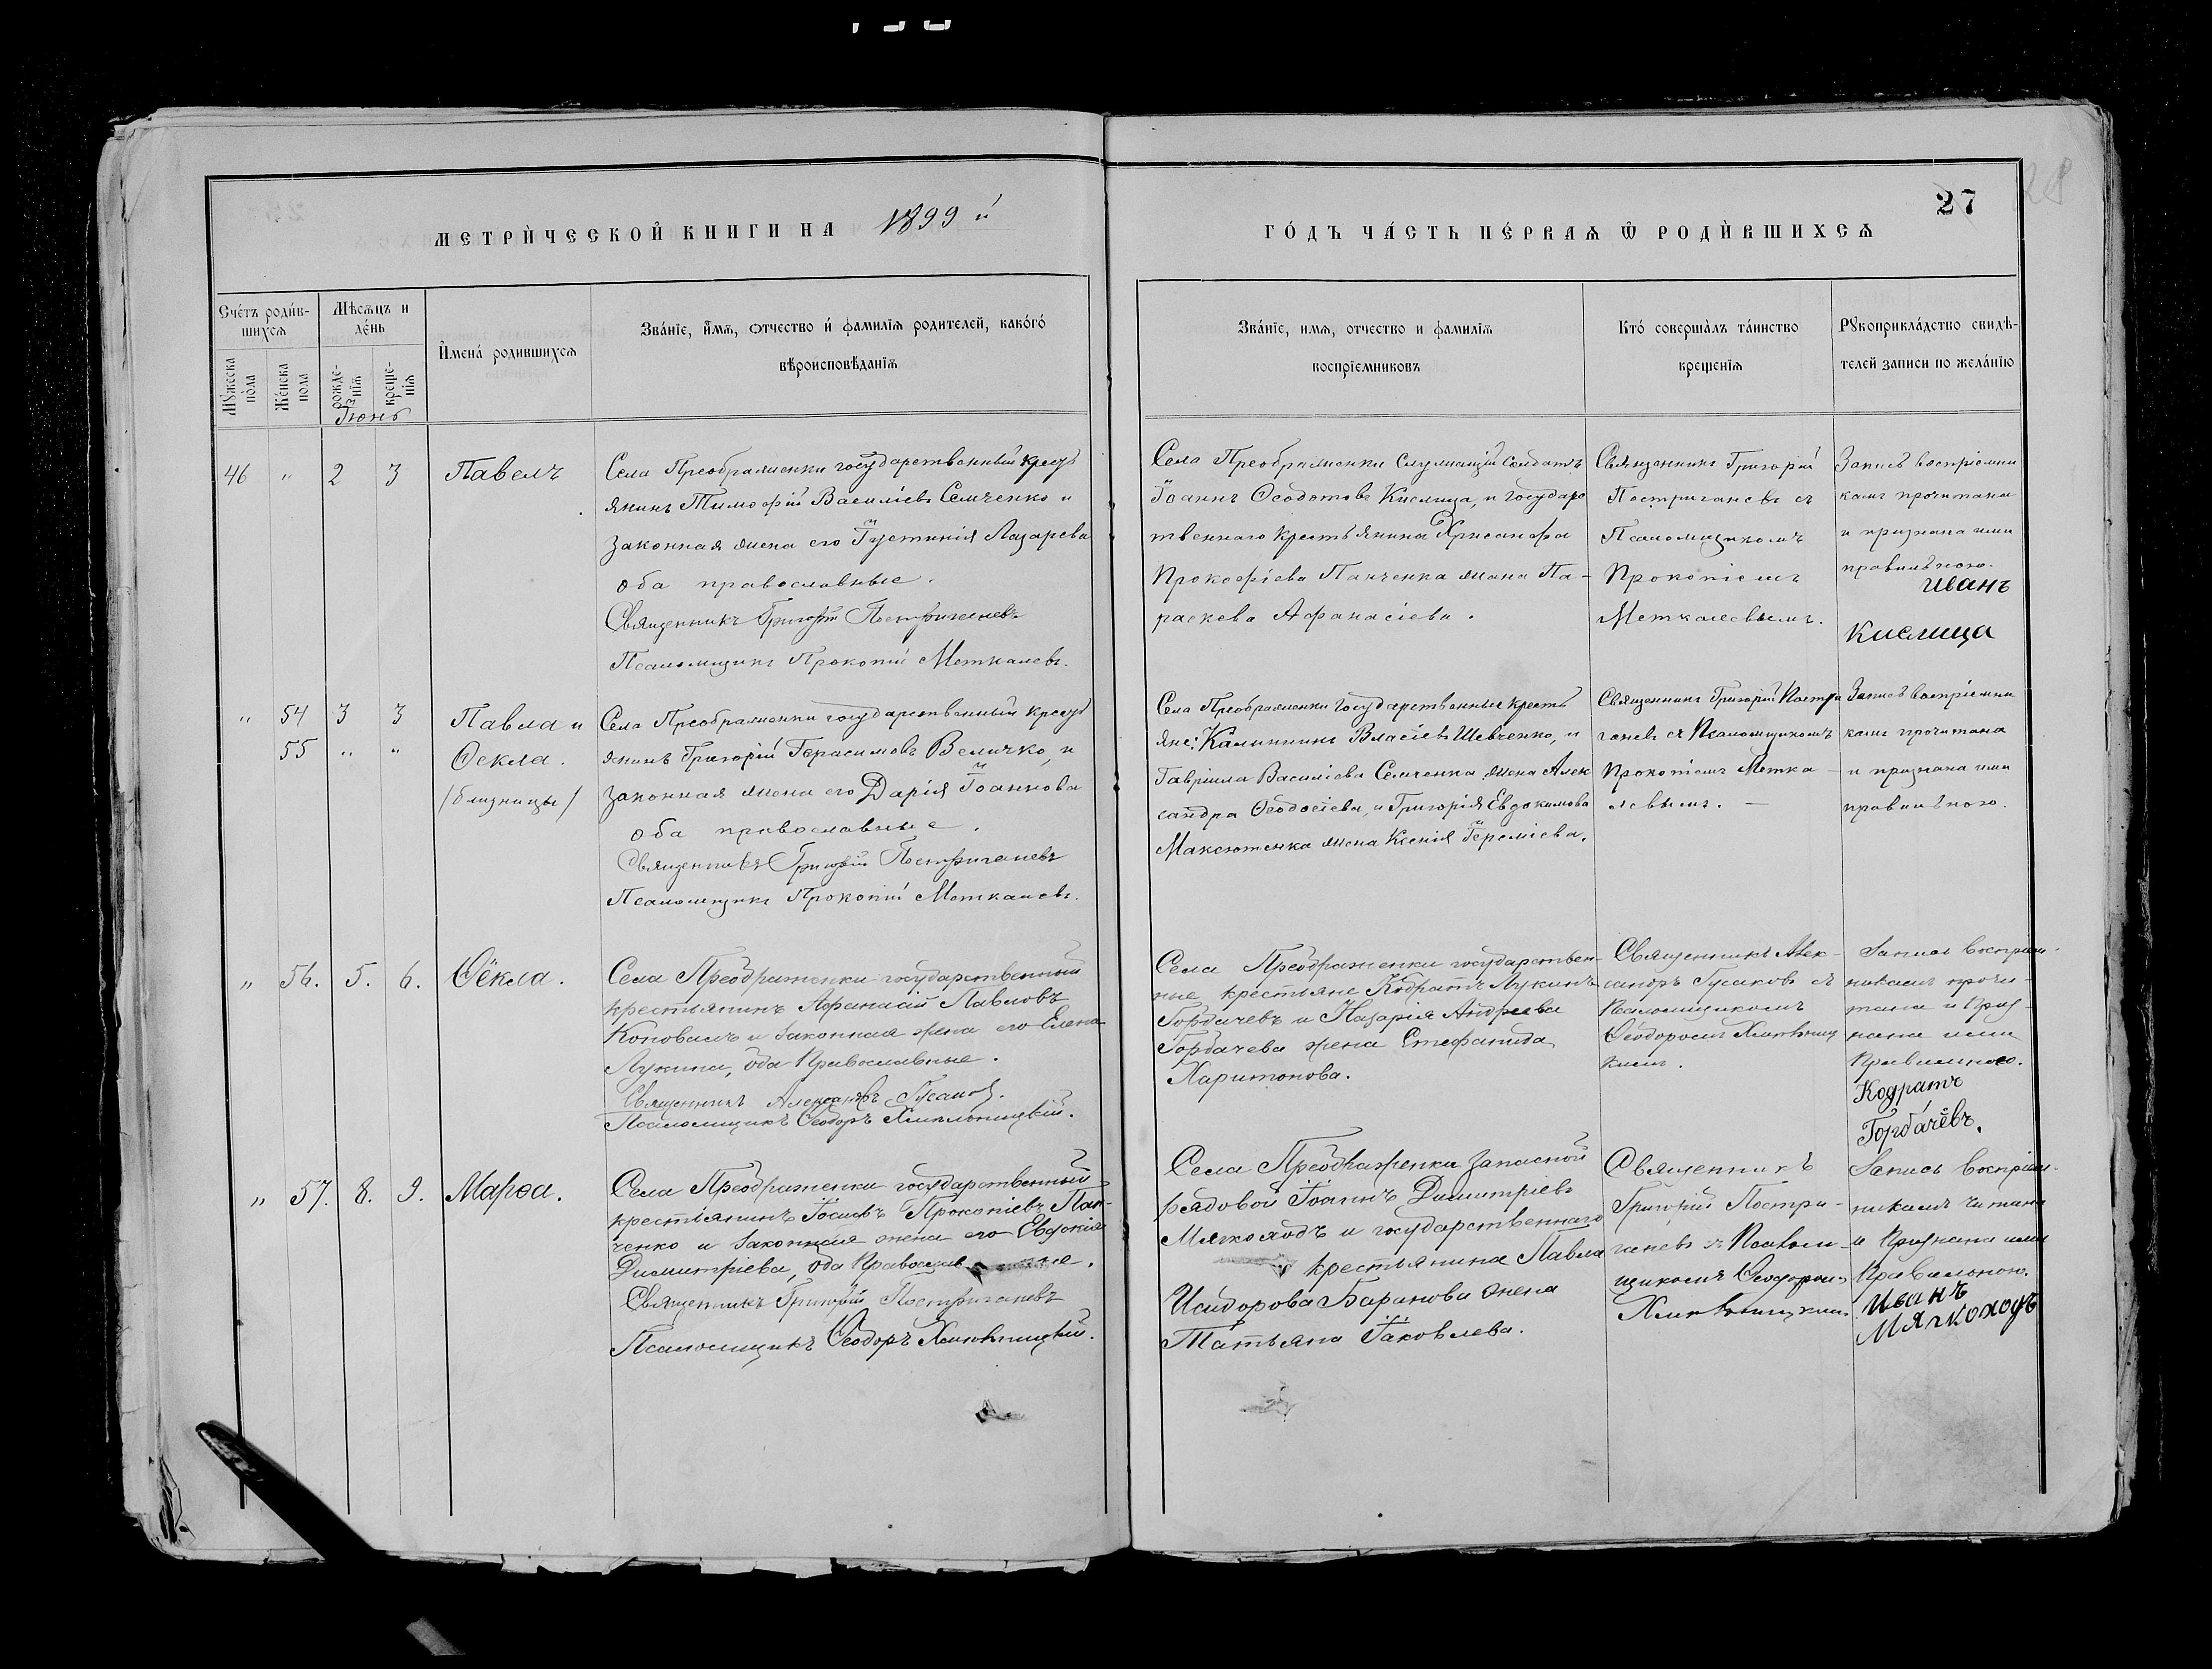 27
28
МЕТРИ́ЧЕСКОЙ КНИГИ НА 1899 й
ГО́ДЪ ЧА́СТЬ ПЕ́РВАѦ Ѿ РОДИ́ВШИХСѦ
Сче́тъ роди́в-
шихсѧ
Мѣсѧцъ и
де́нь
И́мена́ родившихсѧ
Зва́нїе, и́мѧ, ѻтчество и́ фамилїѧ родителей, како́го́
вѣроисповѣ́данїѧ
Мꙋжеска
по́ла
Же́нска
пола
рожде-
нїѧ
креще-
нїѧ
Іюнь
Зва́нїе, имѧ, отчество и фамилїѧ
воспрїемниковъ
Кто́ соверша̀лъ та́инство
крещенїѧ
Рꙋкоприкла́дство свидѣ-
телей записи по жела́нїю
46 " 2 3 Павелъ
Села Преображенки государственный крест
янинъ Тимофій Василіевъ Семченко и
законная жена его Іустинія Лазарева
оба православные.
Священникъ Григорій Постригачевъ
Псаломщикъ Прокопій Меткалевъ.
Села Преображенки служащій солдатъ
Іоаннъ Ѳеодотовъ Кислица, и государс
твеннаго крестьянина Хрисанфа
Прокофіева Панченка жена Па-
раскева Афанасіева.
Священникъ Григорій
Постригачевъ съ
Псаломщикомъ
Прокопіемъ
Меткалевымъ.
Запись воспріемни
камъ прочитана
и признана ими
правильною.
Иванъ
Кислица
" 54 3 3 Павла и
55 " " Ѳекла.
/близницы/
Села Преображенки государственный крест
янинъ Григорій Герасимовъ Величко, и
законная жена его Дарія Іоаннова
оба православные.
Священникъ Григорій Постригачевъ
Псаломщикъ Прокопій Меткалевъ.
Села Преображенки государственные кресть
яне: Калинникъ Власіевъ Шевченко, и
Гавріила Василіева Семченка жена Алек
сандра Ѳеодосіева, и Григорія Евдокимова
Максютенка жена Ксенія Іереміева.
Священникъ Григорій Постри
гачевъ съ Псаломщикомъ
Прокопіемъ Метка-
левымъ. —
Запись воспріемни
камъ прочитана
и признана ими
правильною.
" 56. 5. 6. Ѳёкла.
Села Преображенки государственный
крестьянинъ Афанасій Павловъ
Коноваль и законная жена его Елена
Лукина, оба Православные.
Священникъ Александръ Гусаковъ.
Псаломщикъ Ѳеодоръ Хмѣльницкій.
Села Преображенки государствен-
ные крестьяне Кодратъ Лукинъ
Горбачевъ и Назарія Андреева
Горбачева жена Стефанида
Харитонова.
Священникъ Алек-
сандръ Гусаковъ съ
Псаломщикомъ
Ѳеодоромъ Хмѣльниц
кимъ.
Запись воспріем-
никамъ прочи-
тана и приз-
нана ими
Правильною.
Кодратъ
Горбачёвъ.
" 57. 8. 9. Марѳа.
Села Преображенки государственный
крестьянинъ Іосифъ Прокопіевъ Пан-
ченко и законная жена его Евдокія
Димитріева, оба Православные.
Священникъ Григорій Постригачевъ
Псаломщикъ Ѳеодоръ Хмѣльницкій.
Села Преображенки запасной
рядовой Іоаннъ Димитріевъ
Мягкоходъ и государственнаго
крестьянина Павла
Исидорова Баранова жена
Татьяна Іаковлева.
Священникъ
Григорій Постри-
гачевъ съ Псалом-
щикомъ Ѳеодоромъ
Хмѣльницкимъ
Запись воспріем-
никамъ читана
и Признана ими
Правильною.
Иванъ
Мягкоходъ